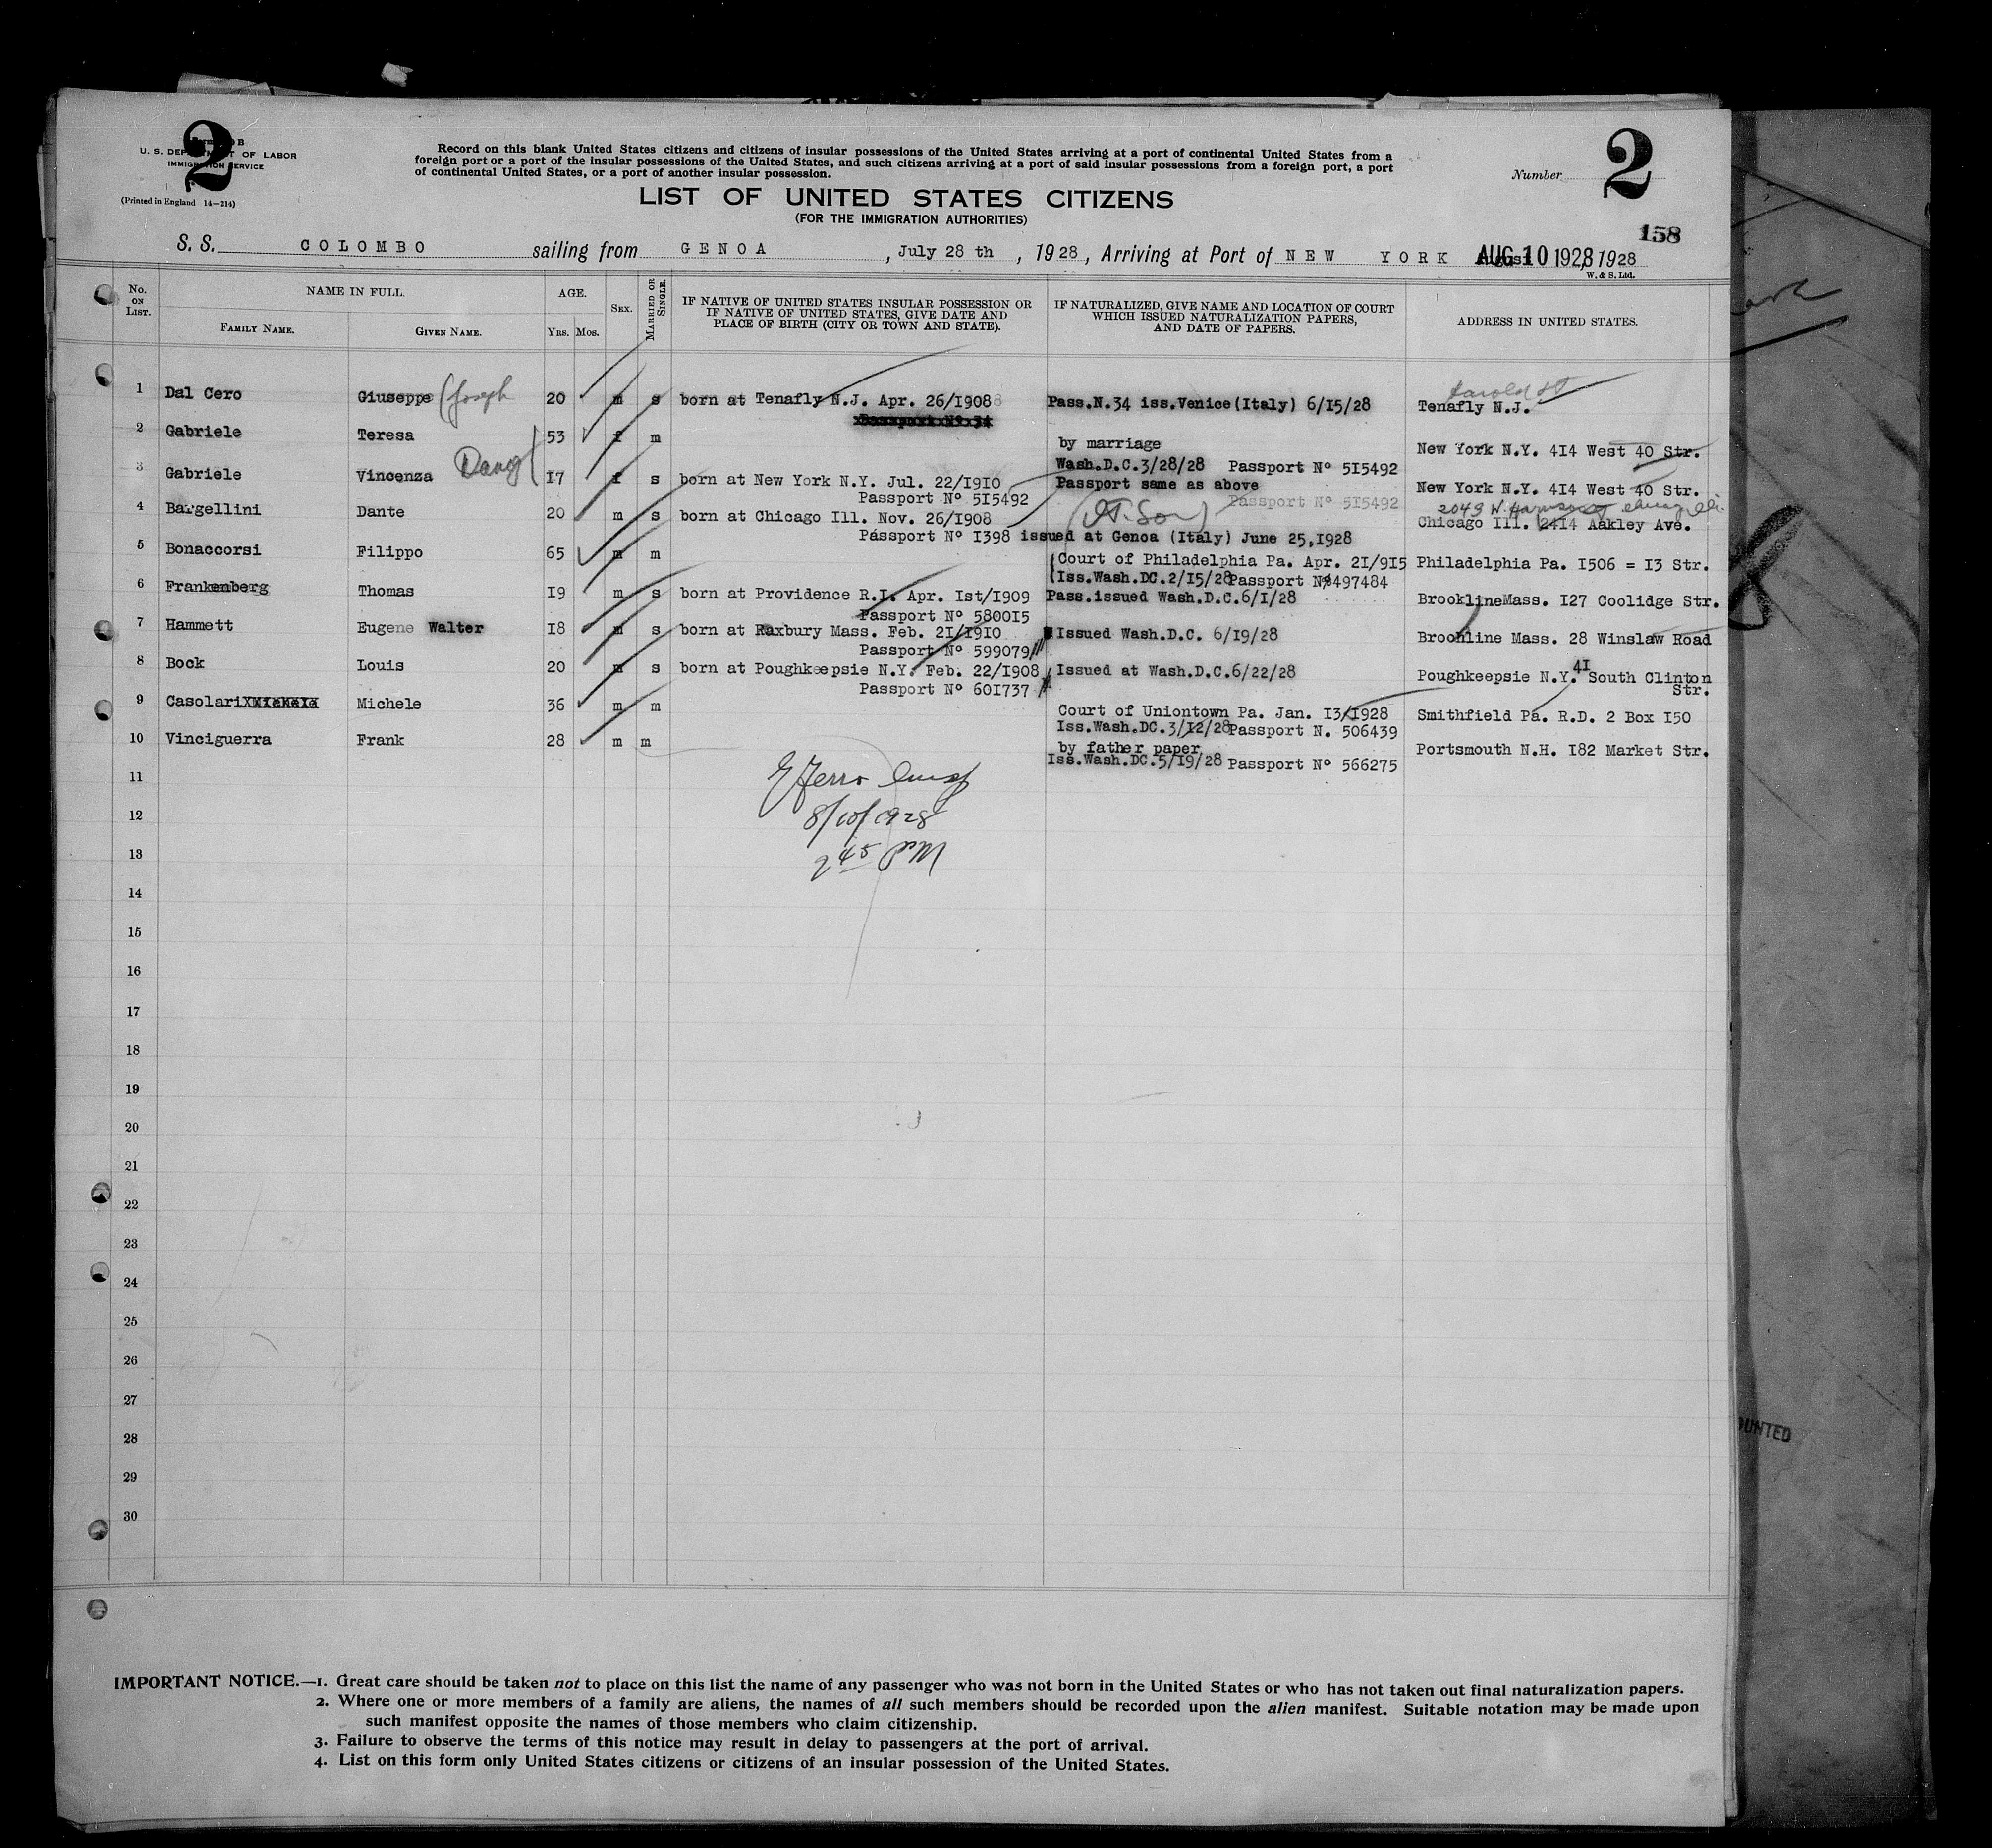 2
2
U. S. DEPARTMENT OF LABOR
IMMIGRATION SERVICE
(Printed in England 14—214)
Record on this blank United States citizens and citizens of insular possessions of the United States arriving at a port of continental United States from a
foreign port or a port of the insular possessions of the United States, and such citizens arriving at a port of said insular possessions from a foreign port, a port
of continental United States, or a port of another insular possession.
Number
LIST OF UNITED STATES CITIZENS
(FOR THE IMMIGRATION AUTHORITIES)
158
S. S. COLOMBO sailing from GENOA, July 28 th, 1928, Arriving at Port of NEW YORK AUG 10 1928, 1928
W. & S. Ltd.
No. ON LIST.
NAME IN FULL.
FAMILY NAME.
GIVEN NAME.
AGE.
YRS. MOS.
SEX.
MARRIED OR SINGLE.
IF NATIVE OF UNITED STATES INSULAR POSSESSION OR
IF NATIVE OF UNITED STATES, GIVE DATE AND
PLACE OF BIRTH (CITY OR TOWN AND STATE).
IF NATURALIZED, GIVE NAME AND LOCATION OF COURT
WHICH ISSUED NATURALIZATION PAPERS,
AND DATE OF PAPERS.
ADDRESS IN UNITED STATES.
1 Dal Cero Giuseppe (Joseph 20 m s born at Tenafly N.J. Apr. 26/1908 Pass.N.34 iss.Venice(Italy) 6/15/28 Tenafly N.J.
2 Gabriele Teresa 53 f m by marriage New York N.Y. 414 West 40 Str.
Wash.D.C.3/28/28 Passport Nº 515492
3 Gabriele Vincenza 17 f s born at New York N.Y. Jul. 22/1910 Passport same as above New York N.Y. 414 West 40 Str.
Passport Nº 515492 Passport Nº 515492
4 Bargellini Dante 20 m s born at Chicago Ill. Nov. 26/1908 Chicago Ill. 2414 Aakley Ave.
Passport Nº 1398 issued at Genoa (Italy) June 25,1928
5 Bonaccorsi Filippo 65 m m (Court of Philadelphia Pa. Apr. 21/915 Philadelphia Pa. 1506 = 13 Str.
(Iss.Wash.DC.2/15/28 Passport Nº497484
6 Frankenberg Thomas 19 m s born at Providence R.I. Apr. 1st/1909 Pass.issued Wash.D.C.6/1/28 BrooklineMass. 127 Coolidge Str.
Passport Nº 580015
7 Hammett Eugene Walter 18 m s born at Raxbury Mass. Feb. 21/1910 Issued Wash.D.C. 6/19/28 Broohline Mass. 28 Winslaw Road
Passport Nº 599079
8 Bock Louis 20 m s born at Poughkeepsie N.Y. Feb. 22/1908 Issued at Wash.D.C.6/22/28 Poughkeepsie N.Y. 41 South Clinton
Str.
Passport Nº 601737
9 Casolari Michele 36 m m Court of Uniontown Pa. Jan. 13/1928 Smithfield Pa. R.D. 2 Box 150
Iss.Wash.DC.3/12/28 Passport N. 506439
10 Vinciguerra Frank 28 m m by father paper Portsmouth N.H. 182 Market Str.
Iss.Wash.DC.5/19/28 Passport Nº 566275
11
8/10/1928
12
2 45 PM
13
14
15
16
17
18
19
20
21
22
23
24
25
26
27
28
29
30
IMPORTANT NOTICE.—1. Great care should be taken not to place on this list the name of any passenger who was not born in the United States or who has not taken out final naturalization papers.
2. Where one or more members of a family are aliens, the names of all such members should be recorded upon the alien manifest. Suitable notation may be made upon
such manifest opposite the names of those members who claim citizenship.
3. Failure to observe the terms of this notice may result in delay to passengers at the port of arrival.
4. List on this form only United States citizens or citizens of an insular possession of the United States.